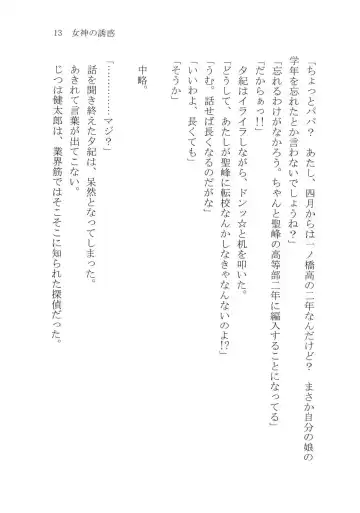 13　女神の誘惑
「ちょっとパパ？　あたし、四月からは一ノ橋高の二年なんだけど？　まさか自分の娘の
学年を忘れたとか言わないでしょうね？」
「忘れるわけがなかろう。ちゃんと聖峰の高等部二年に編入することになってる」
「だからぁっ!!」
夕紀はイライラしながら、ドンッ☆と机を叩いた。
「どうして、あたしが聖峰に転校なんかしなきゃなんないのよ!?」
「うむ。話せば長くなるのだがな」
「いいわよ、長くても」
「そうか」
中略。
「…………マジ？」
話を聞き終えた夕紀は、呆然となってしまった。
あきれて言葉が出てこない。
じつは健太郎は、業界筋ではそこそこに知られた探偵だった。